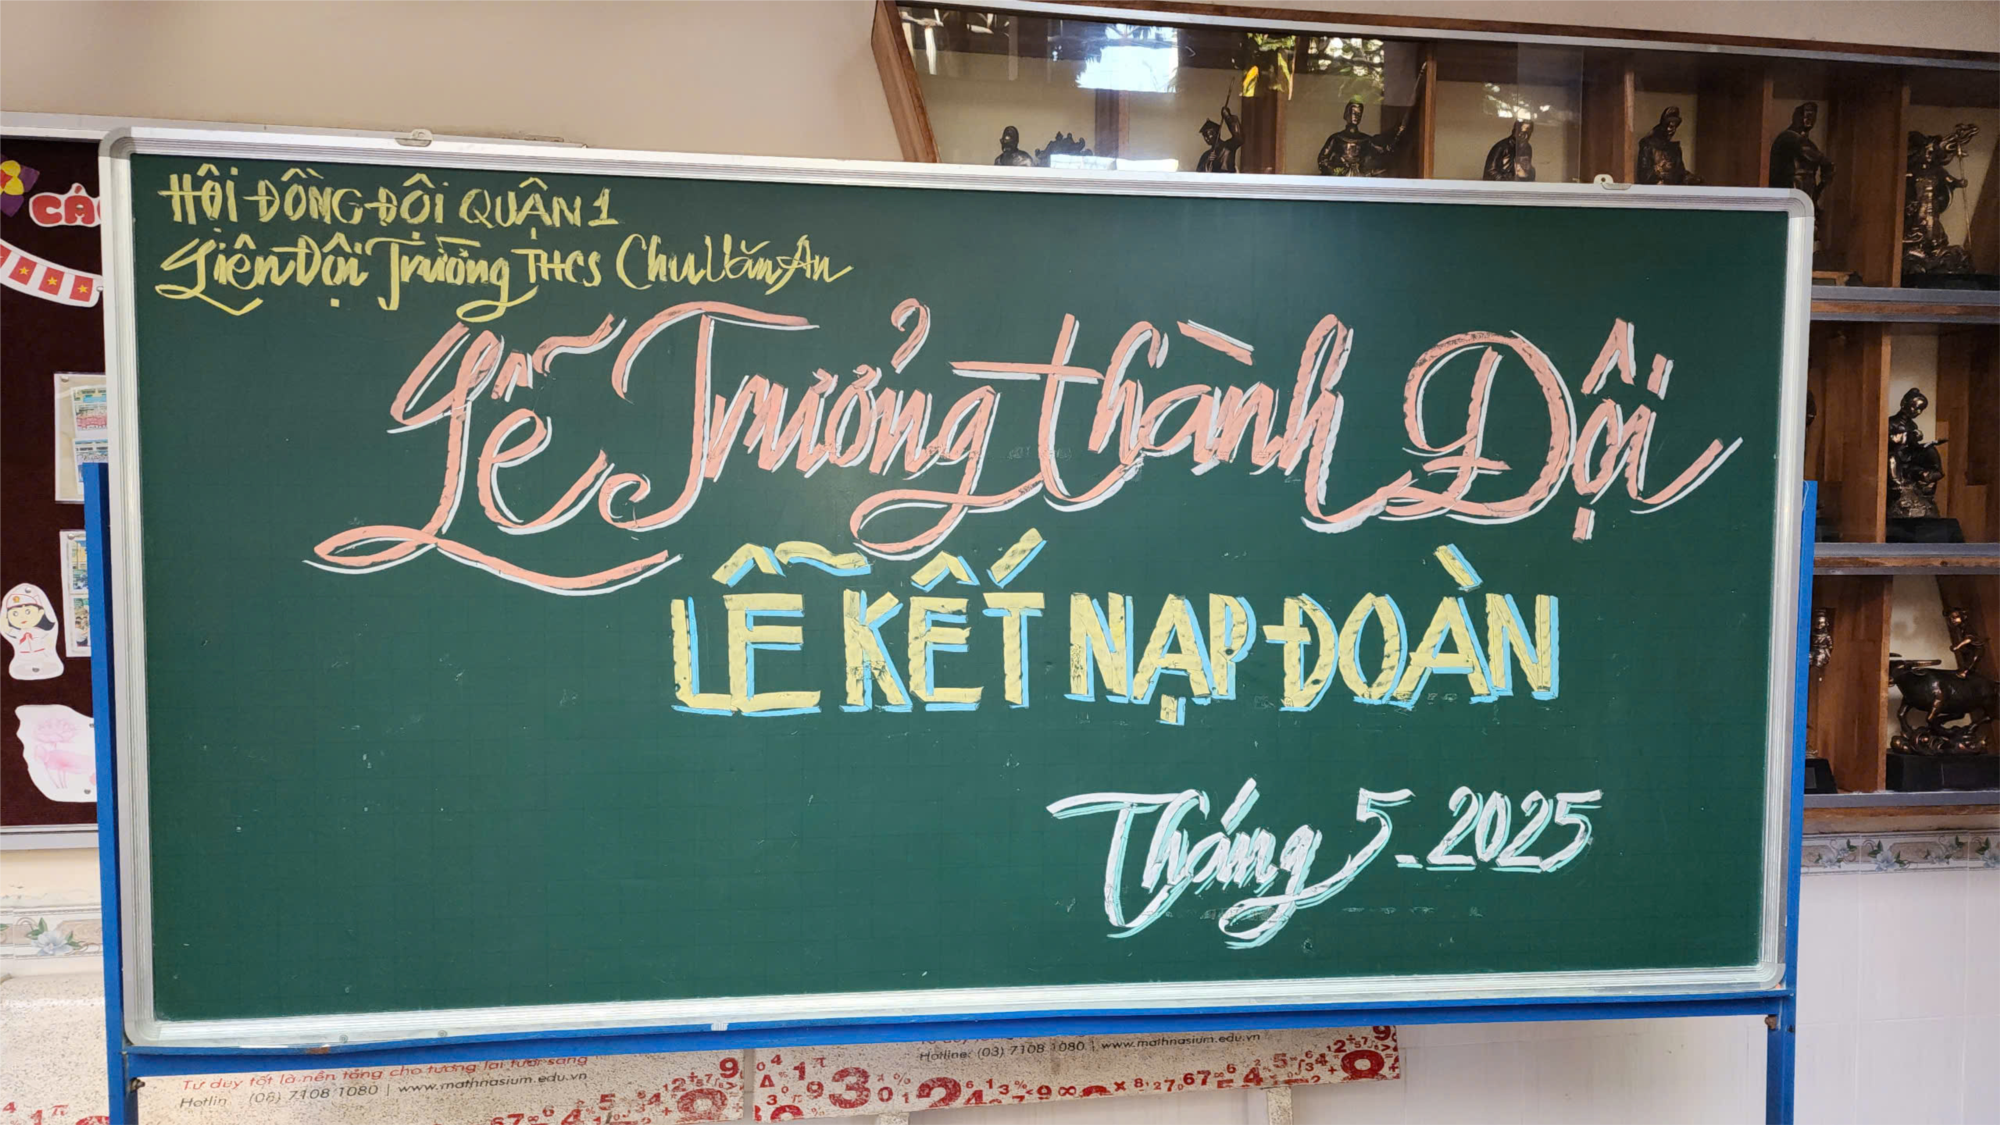 HỘI ĐỒNG ĐỘI QUẬN 1
Liên Đội Trường THCS Chu Văn An
Lễ Trưởng thành Đội
LỄ KẾT NẠP ĐOÀN
Tháng 5-2025
CÁ
Tư duy tốt là nền tảng cho tương lai tươi sáng
Hotlin (06) 7108 1080 | www.mathnasium.edu.vn
Hotline: (03) 7108 1080 | www.mathnasium.edu.vn